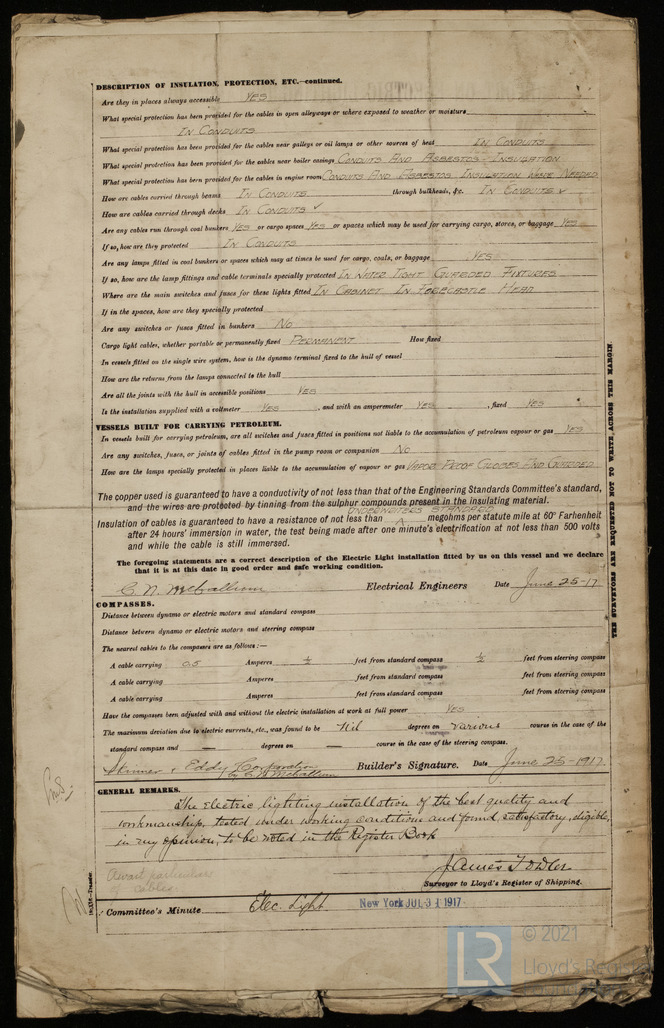 DESCRIPTION OF INSULATION, PROTECTION, ETC.—continued.
Are they in places always accessible YES
What special protection has been provided for the cables in open alleyways or where exposed to weather or moisture
IN CONDUITS
What special protection has been provided for the cables near galleys or oil lamps or other sources of heat IN CONDUITS
What special protection has been provided for the cables near boiler casings CONDUITS AND ASBESTOS-INSULATION
What special protection has been provided for the cables in engine room CONDUITS AND ASBESTOS INSULATION WHERE NEEDED
How are cables carried through beams IN CONDUITS through bulkheads, &c. IN CONDUITS ✓
How are cables carried through decks IN CONDUITS ✓
Are any cables run through coal bunkers YES or cargo spaces YES or spaces which may be used for carrying cargo, stores, or baggage YES
If so, how are they protected IN CONDUITS
Are any lamps fitted in coal bunkers or spaces which may at times be used for cargo, coals, or baggage YES
If so, how are the lamp fittings and cable terminals specially protected IN WATER TIGHT GUARDED FIXTURES
Where are the main switches and fuses for these lights fitted IN CABINET IN FORECASTLE HEAD
If in the spaces, how are they specially protected
Are any switches or fuses fitted in bunkers NO
Cargo light cables, whether portable or permanently fixed PERMANENT How fixed
In vessels fitted on the single wire system, how is the dynamo terminal fixed to the hull of vessel
How are the returns from the lamps connected to the hull
Are all the joints with the hull in accessible positions YES
Is the installation supplied with a voltmeter YES , and with an amperemeter YES , fixed YES
VESSELS BUILT FOR CARRYING PETROLEUM.
In vessels built for carrying petroleum, are all switches and fuses fitted in positions not liable to the accumulation of petroleum vapour or gas YES
Are any switches, fuses, or joints of cables fitted in the pump room or companion NO
How are the lamps specially protected in places liable to the accumulation of vapour or gas VAPOR PROOF GLOBES AND GUARDED
The copper used is guaranteed to have a conductivity of not less than that of the Engineering Standards Committee's standard,
and the wires are protected by tinning from the sulphur compounds present in the insulating material.
UNDERWRITERS STANDARD
Insulation of cables is guaranteed to have a resistance of not less than megohms per statute mile at 60° Farhenheit
after 24 hours' immersion in water, the test being made after one minute's electrification at not less than 500 volts
and while the cable is still immersed.
The foregoing statements are a correct description of the Electric Light installation fitted by us on this vessel and we declare
that it is at this date in good order and safe working condition.
Electrical Engineers Date June 25-17
COMPASSES.
Distance between dynamo or electric motors and standard compass
Distance between dynamo or electric motors and steering compass
The nearest cables to the compasses are as follows:—
A cable carrying 0.5 Amperes ½ feet from standard compass ½ feet from steering compass
A cable carrying Amperes feet from standard compass feet from steering compass
A cable carrying Amperes feet from standard compass feet from steering compass
Have the compasses been adjusted with and without the electric installation at work at full power YES
The maximum deviation due to electric currents, etc., was found to be Nil degrees on various course in the case of the
standard compass and — degrees on — course in the case of the steering compass.
Skinner & Eddy Corporation Builder's Signature. Date June 25-1917.
GENERAL REMARKS.
The electric lighting installation of the best quality and
workmanship, tested under working conditions and found satisfactory, eligible,
in my opinion, to be noted in the Register Book
James Fowler
Surveyor to Lloyd's Register of Shipping.
Await particulars
of cables.
Committee's Minute Elec. Light New York JUL 31 1917
THE SURVEYORS ARE REQUESTED NOT TO WRITE ACROSS THIS MARGIN.
LR
© 2021
Lloyd's Register